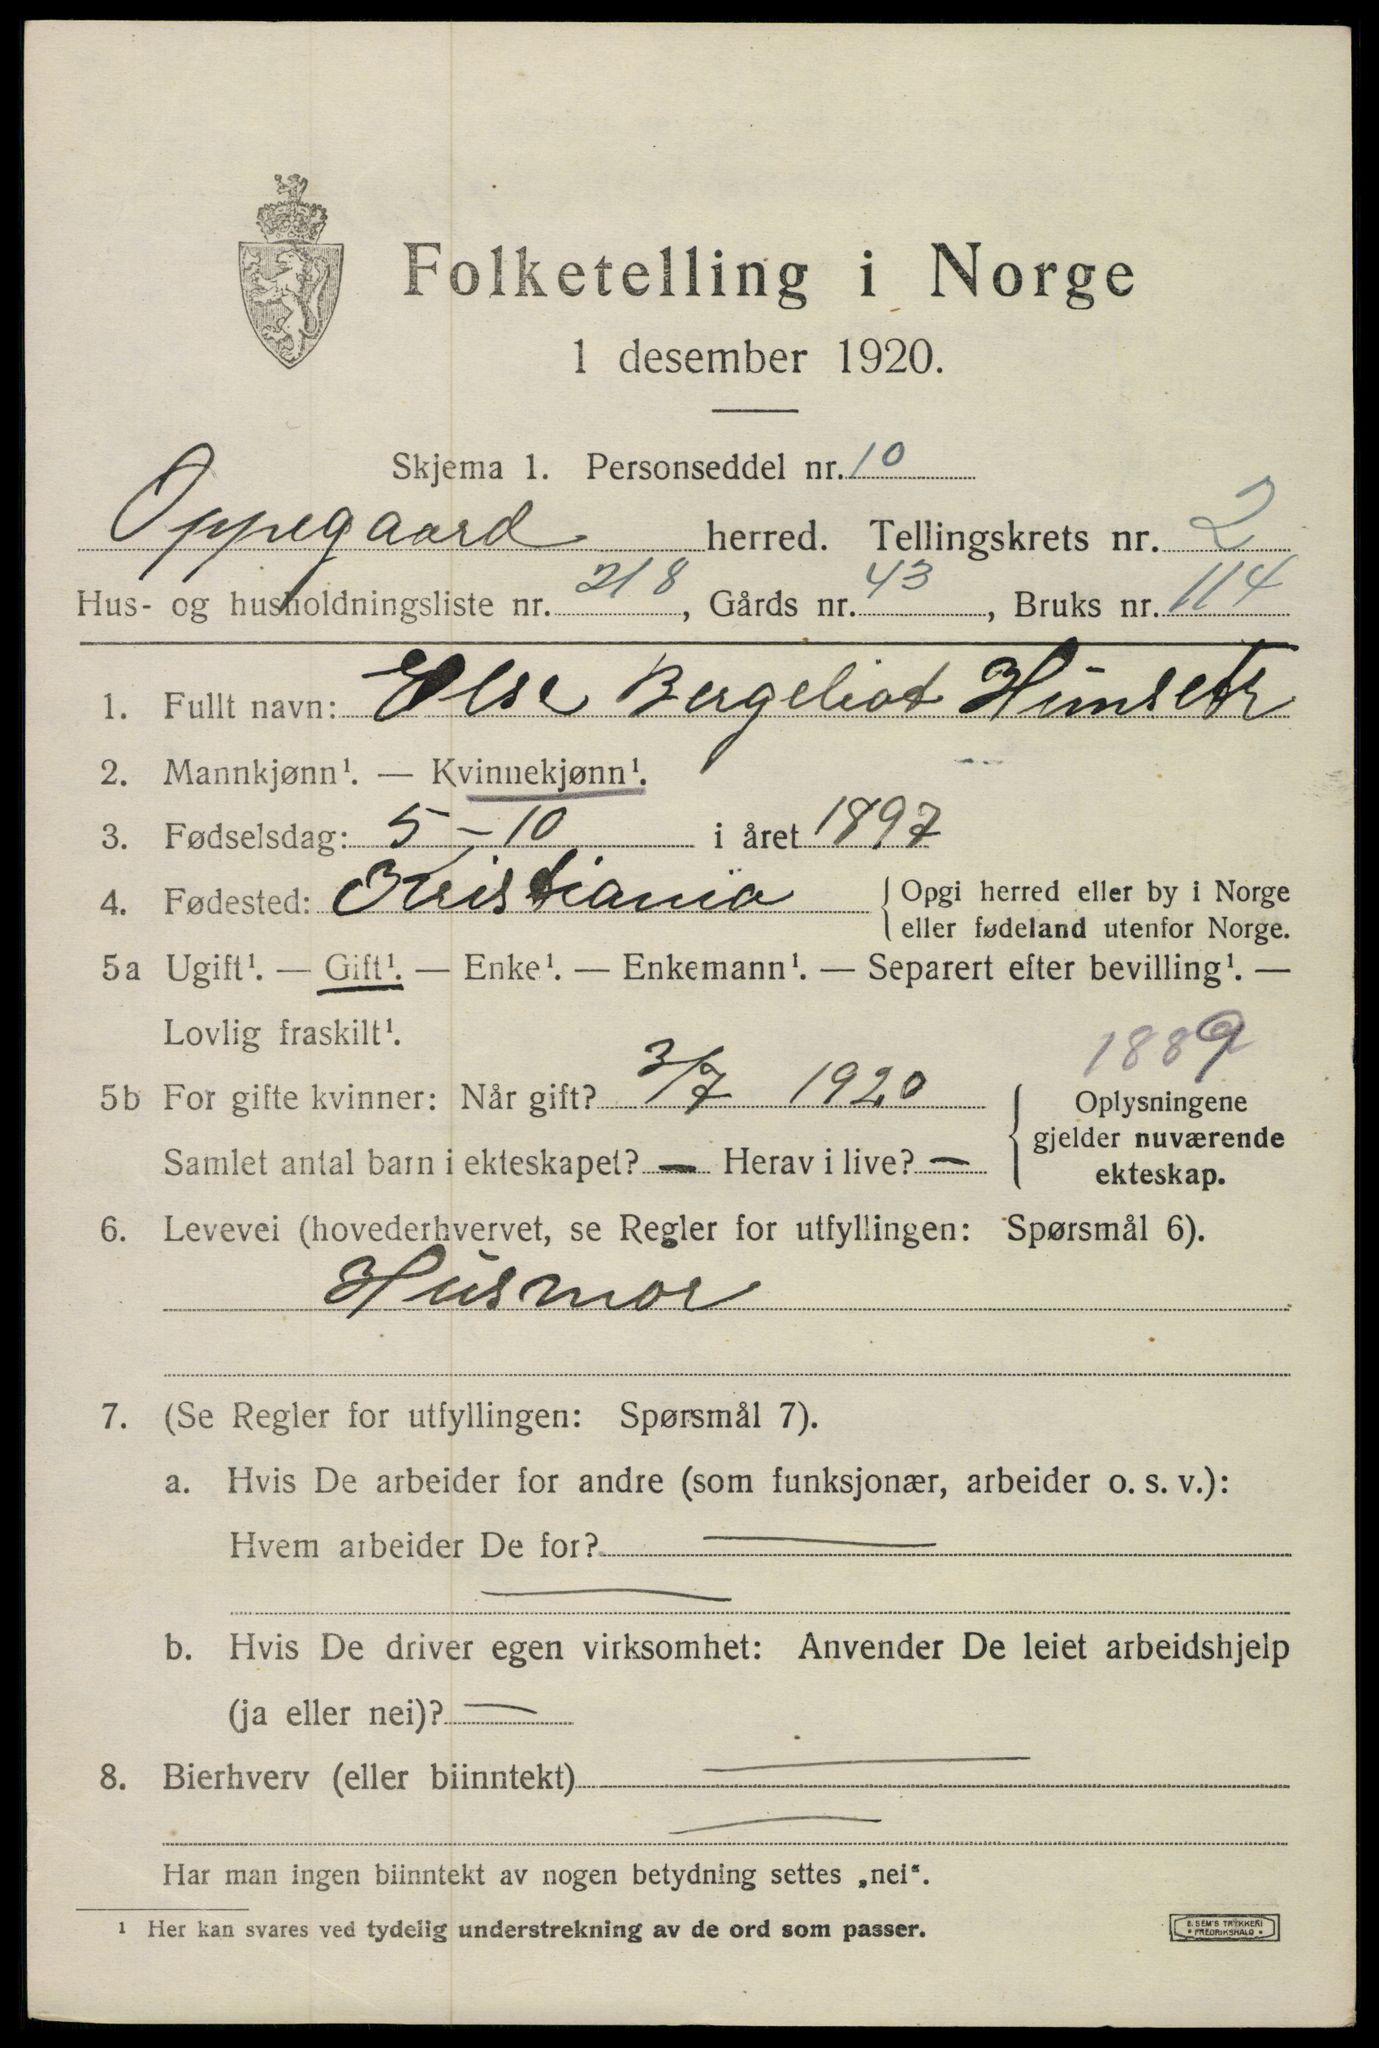 Folketelling i Norge
1 desember 1920.
Skjema 1. Personseddel nr. 10
Oppegaard herred. Tellingskrets nr. 2
Hus- og husholdningsliste nr. 218, Gårds nr. 43, Bruks nr. 114
1. Fullt navn: Else Bergeliot Hunsetr
2. Mannkjønn¹. — Kvinnekjønn¹.
3. Fødselsdag: 5 – 10 i året 1897
4. Fødested: Kristiania { Opgi herred eller by i Norge
eller fødeland utenfor Norge.
5a Ugift¹. — Gift¹. — Enke¹. — Enkemann¹. — Separert efter bevilling¹. —
Lovlig fraskilt¹.
1889
5b For gifte kvinner: Når gift? 3/7 1920
Samlet antal barn i ekteskapet? — Herav i live? —
{ Oplysningene
gjelder nuværende
ekteskap.
6. Levevei (hovederhvervet, se Regler for utfyllingen: Spørsmål 6).
Husmor
7. (Se Regler for utfyllingen: Spørsmål 7).
a. Hvis De arbeider for andre (som funksjonær, arbeider o. s. v.):
Hvem arbeider De for? —
—
b. Hvis De driver egen virksomhet: Anvender De leiet arbeidshjelp
(ja eller nei)? —
8. Bierhverv (eller biinntekt) —
—
Har man ingen biinntekt av nogen betydning settes „nei“.
¹ Her kan svares ved tydelig understrekning av de ord som passer.
E. SEM'S TRYKKERI
• FREDRIKSHALD •